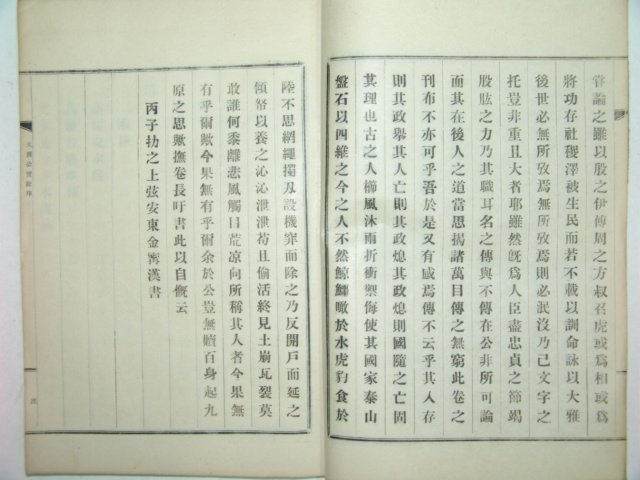 甞論之雖以殷之伊傅周之方叔召虎或爲相或爲
將功存社稷澤被生民而若不載以訓命詠以大雅
後世必無所攷焉無所攷焉則必泯沒乃已文字之
托豈非重且大者耶雖然旣爲人臣盡忠貞之節竭
股肱之力乃其職耳名之傳與不傳在公非所可論
而其在後人之道當思揭諸萬目傳之無窮此卷之
刊布不亦可乎吾於是又有感焉傳不云乎其人存
則其政擧其人亡則其政熄其政熄則國隨之亡固
其理也古之人櫛風沐雨折衝禦侮使其國家泰山
盤石以四維之今之人不然鯨鱷瞰於水虎豹食於
陸不思網繩擉刃設機穽而除之乃反開戶而延之
傾帑以養之沁沁泄泄苟且偷活終見土崩瓦裂莫
敢誰何黍離悲風觸目荒凉向所稱其人者今果無
有乎爾歟今果無有乎爾余於公豈無贖百身起九
原之思歟撫卷長吁書此以自慨云
丙子扐之上弦安東金甯漢書